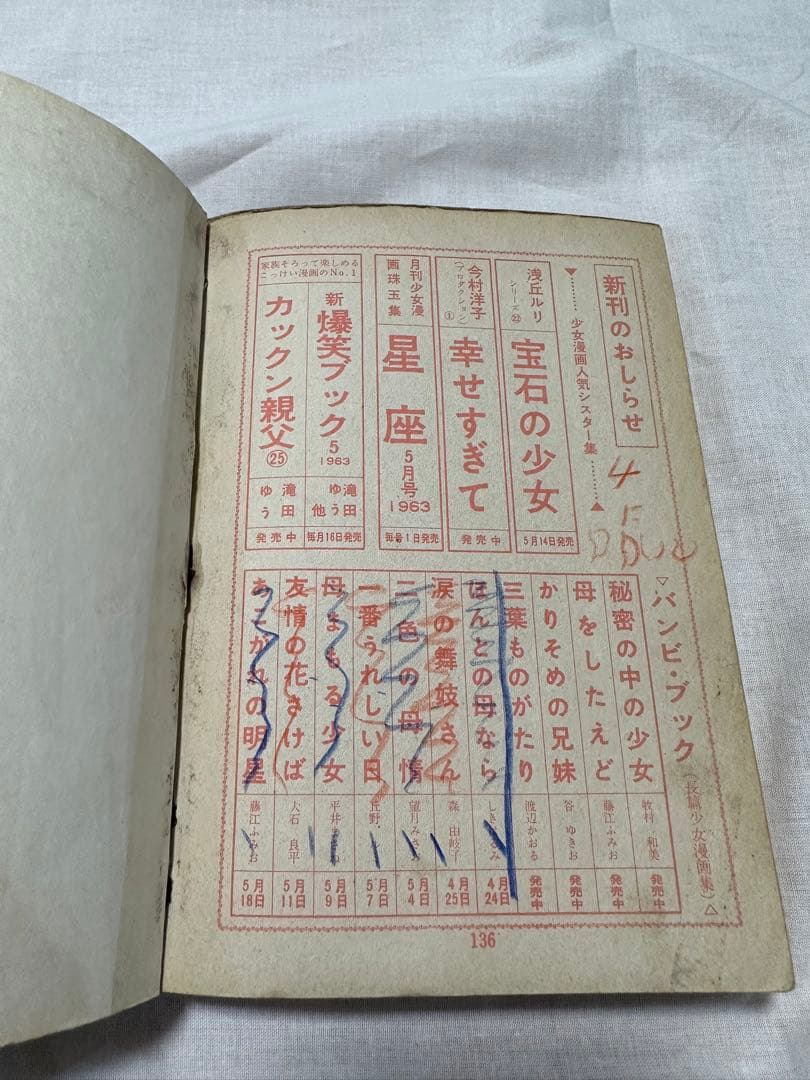 新刊のおしらせ
▼………少女漫画人気シスター集………▲
浅丘ルリ
シリーズ㉒
宝石の少女
5月14日発売
今村洋子
(プロダクション)①
幸せすぎて
発売中
月刊少女漫
画珠玉集
星座
5月号
1963
毎号1日発売
家族そろって楽しめる
こっけい漫画のNo.1
新
爆笑ブック
5
1963
滝田ゆう
他
毎月16日発売
カックン親父
㉕
滝田
ゆう
発売中
4
▽バンビ・ブック(長篇少女漫画集)△
秘密の中の少女 牧村和美 発売中
母をしたえど 藤江ふみお 発売中
かりそめの兄妹 谷ゆきお 発売中
三葉ものがたり 渡辺かおる 発売中
ほんとの母なら 4月24日
涙の舞妓さん 森由岐子 4月25日
二色の母情 望月みさお 5月4日
一番うれしい日 5月7日
母まもる少女 平井 5月9日
友情の花さけば 大石良平 5月11日
あこがれの明星 藤江ふみお 5月18日
136